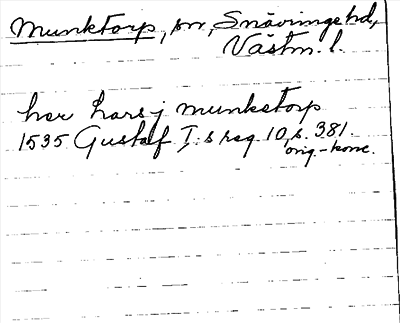 Munktorp, sn, Snävringe hd,
Västm. l.
her Lars j munkatorp
1535 Gustaf I:s reg 10, s. 381.
orig.-konc.